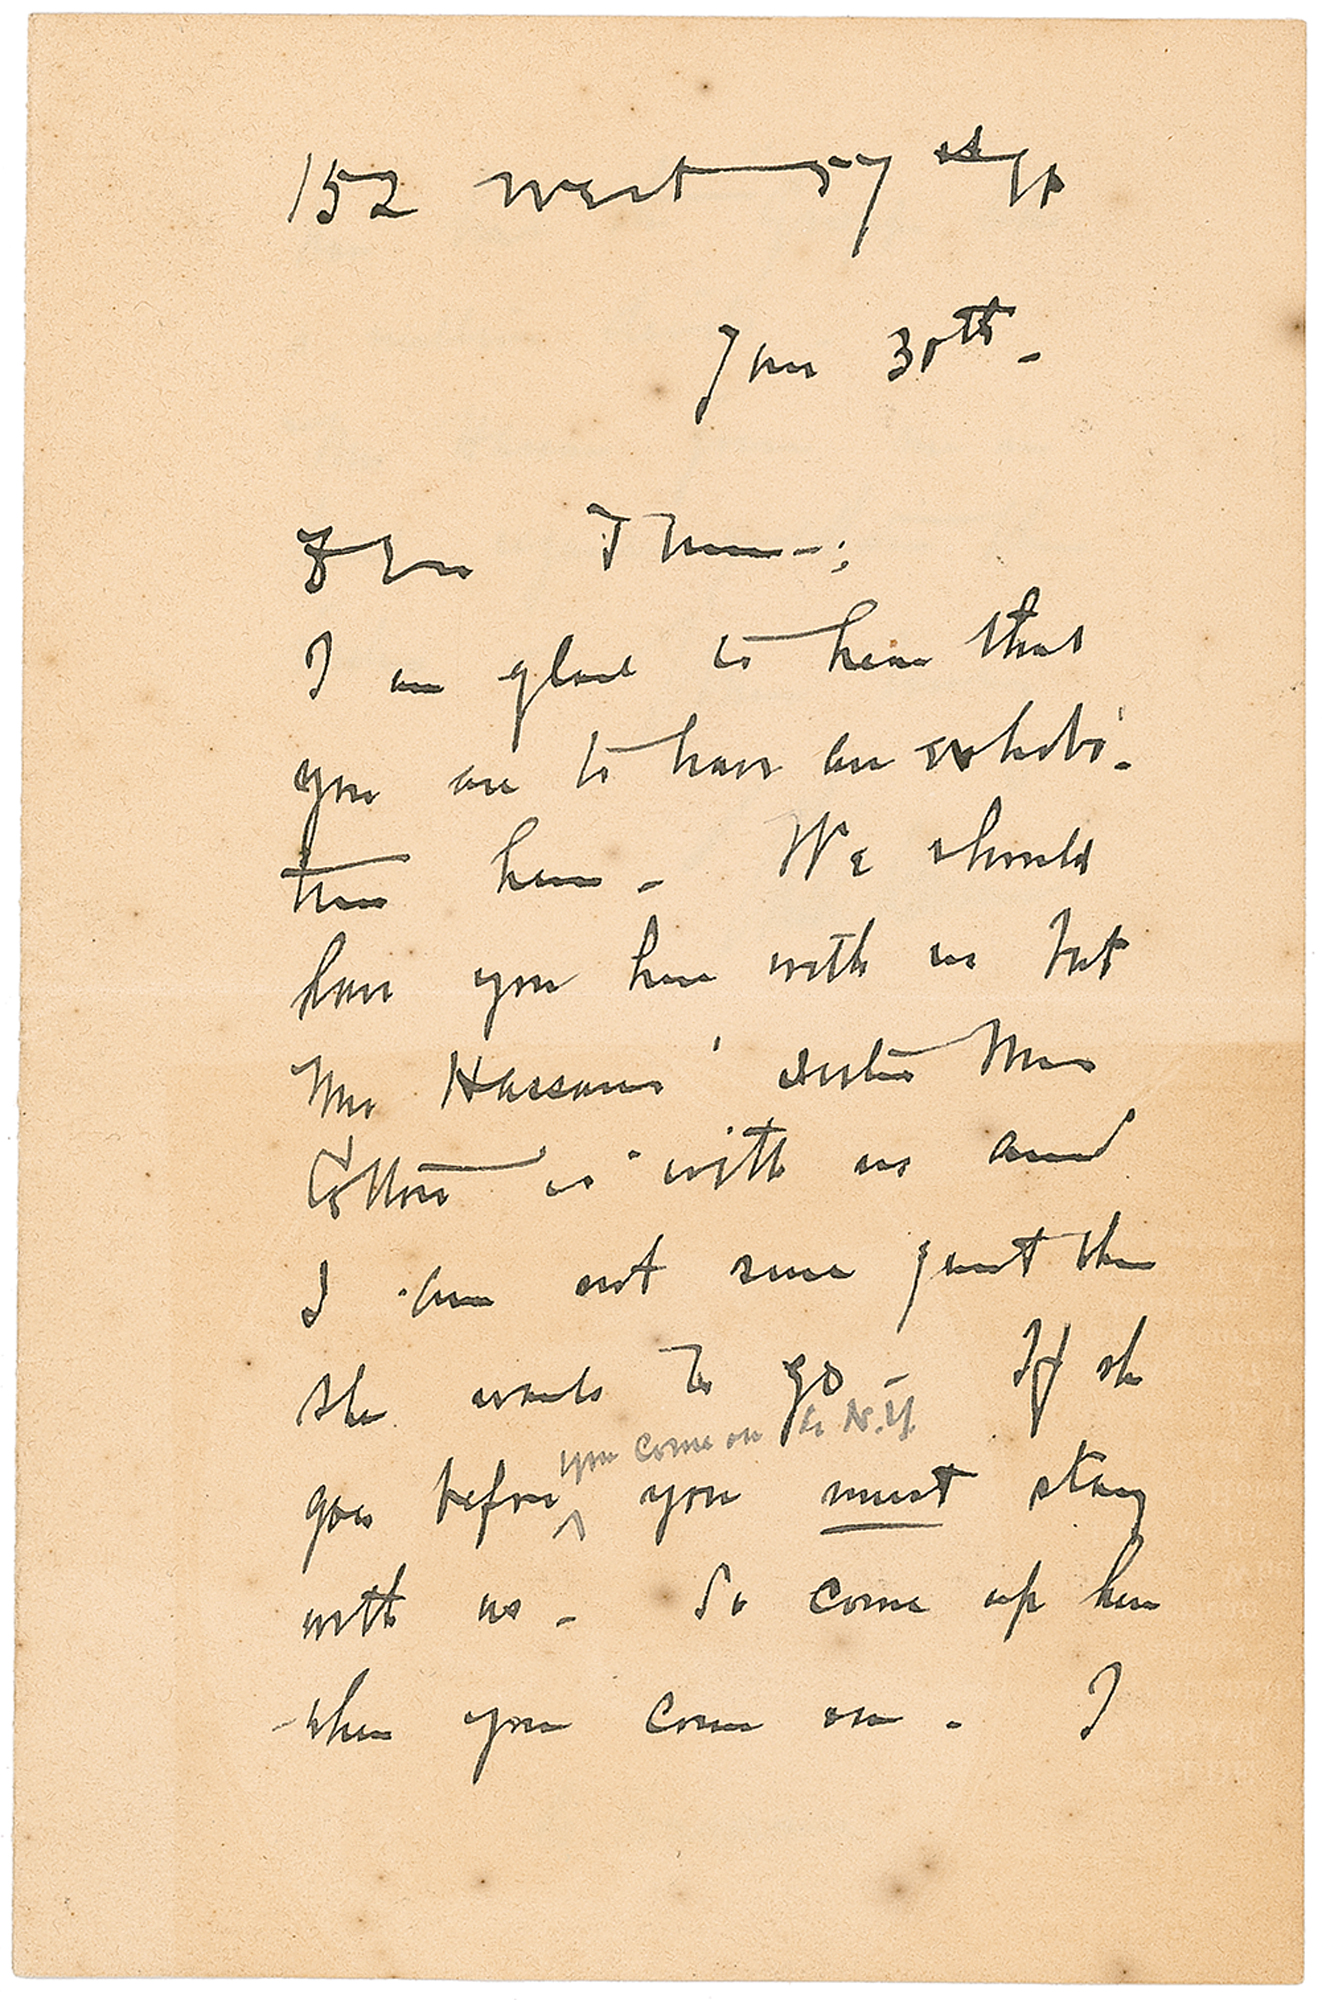 152 West 57th St
Jan 30th -
Dear Thomas - :
I am glad to hear that
you are to have an exhibi-
tion here - We should
have you here with us but
Mrs Hassam's sister Mrs
Cotton is with us and
I am not sure just when
she wants to go - If she
you come on to N.Y.
goes before ^ you must stay
with us - So come up here
when you come on - I